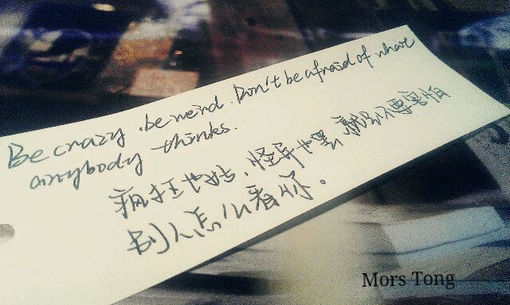 Be crazy. be weird. Don't be afraid of what
anybody thinks.
疯狂也好，怪异也罢，就是不要害怕
别人怎么看你。
Mors Tong